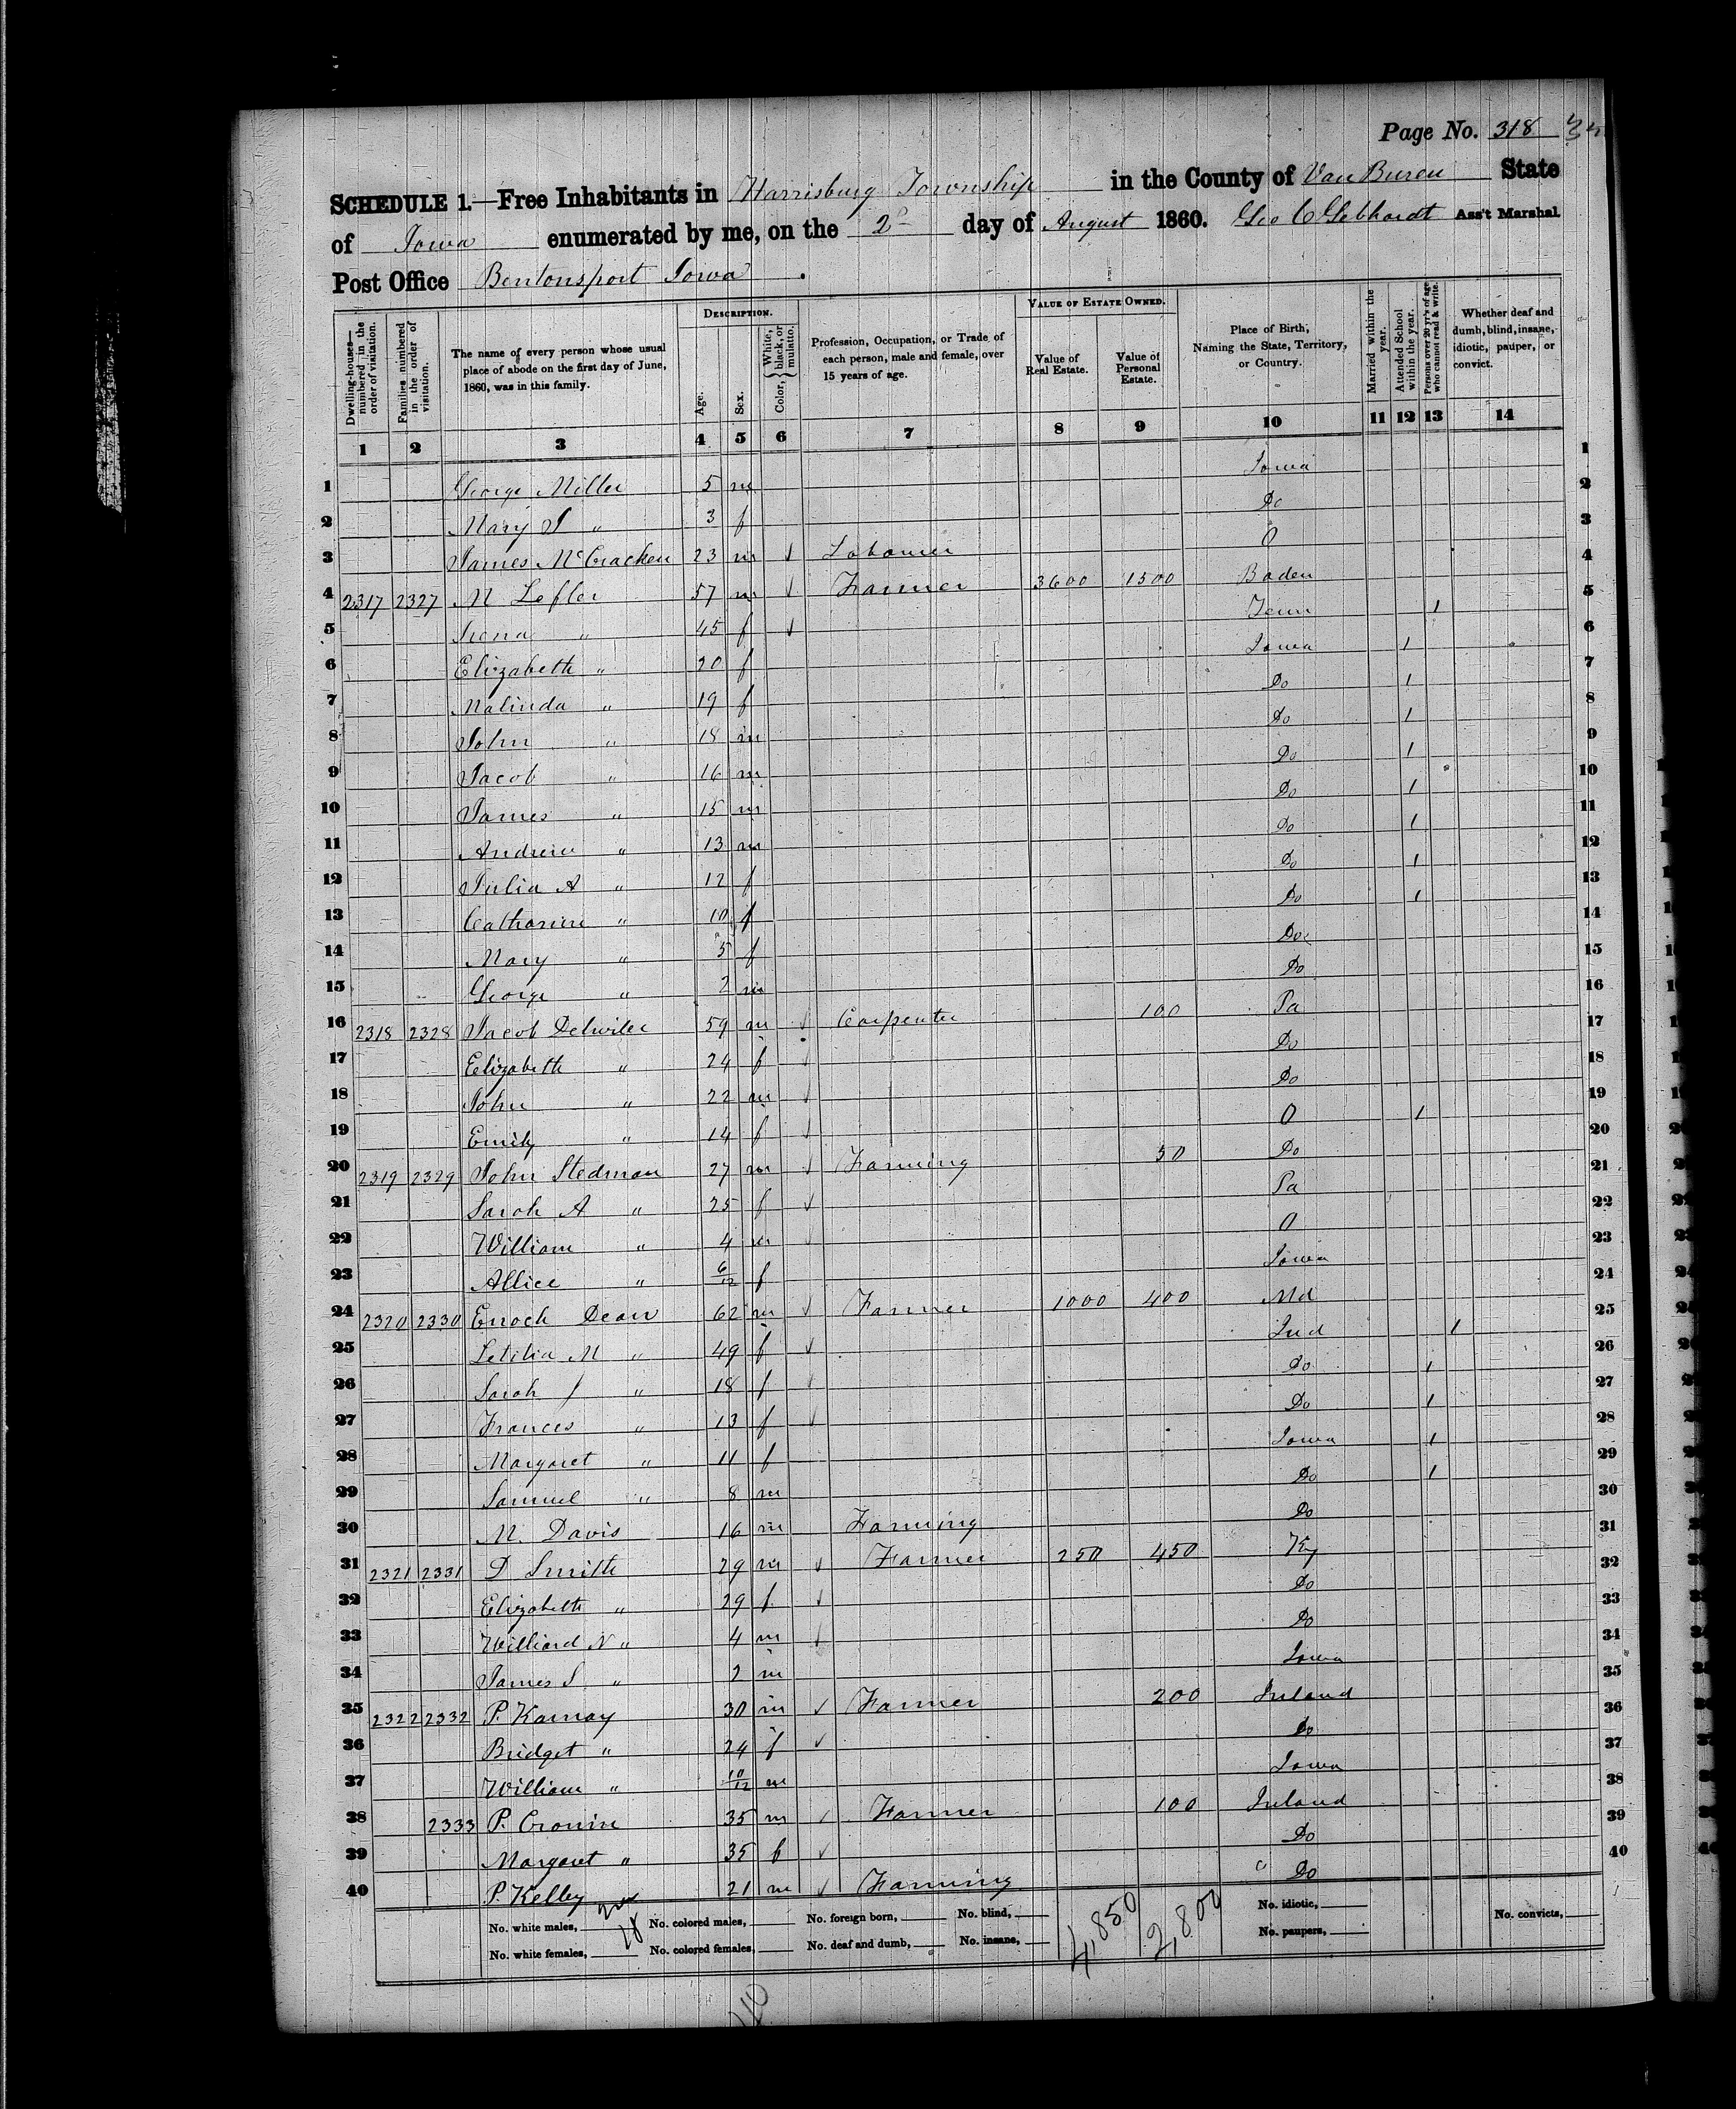 Page No. 318
SCHEDULE 1.—Free Inhabitants in Harrisburg Township in the County of Van Buren State
of Iowa enumerated by me, on the 2d day of August 1860. Geo C Gebhardt Ass't Marshal
Post Office Bentonsport Iowa.
Dwelling-houses—numbered in the order of visitation.
Families numbered in the order of visitation.
The name of every person whose usual place of abode on the first day of June, 1860, was in this family.
DESCRIPTION.
Age.
Sex.
Color, { White, black, or mulatto.
Profession, Occupation, or Trade of each person, male and female, over 15 years of age.
VALUE OF ESTATE OWNED.
Value of Real Estate.
Value of Personal Estate.
Place of Birth, Naming the State, Territory, or Country.
Married within the year.
Attended School within the year.
Persons over 20 yr's of age who cannot read & write.
Whether deaf and dumb, blind, insane, idiotic, pauper, or convict.
1 2 3 4 5 6 7 8 9 10 11 12 13 14
1 George Miller 5 m Iowa 1
2 Mary J " 3 f Do 2
3 James McCracken 23 m Labourer O 3
4 2317 2327 M Lefler 57 m Farmer 3600 1500 Baden 4
5 Irena " 45 f Tenn 1 5
6 Elizabeth " 20 f Iowa 1 6
7 Malinda " 19 f Do 1 7
8 John " 18 m Do 1 8
9 Jacob " 16 m Do 1 9
10 James " 15 m Do 1 10
11 Andrew " 13 m Do 1 11
12 Julia A " 12 f Do 1 12
13 Catharine " 10 f Do 1 13
14 Mary " 5 f Do 14
15 George " 2 m Do 15
16 2318 2328 Jacob Detwiler 59 m Carpenter 100 Pa 16
17 Elizabeth " 24 f Do 17
18 John " 22 m Do 18
19 Emily " 14 f O 1 19
20 2319 2329 John Stedman 27 m Farming 50 Do 20
21 Sarah A " 25 f Pa 21
22 William " 4 m O 22
23 Allice " 6/12 f Iowa 23
24 2320 2330 Enoch Dean 62 m Farmer 1000 400 Md 24
25 Letitia M " 49 f Ind 1 25
26 Sarah J " 18 f Do 1 26
27 Frances " 13 f Do 1 27
28 Margaret " 11 f Iowa 1 28
29 Samuel " 8 m Do 1 29
30 M. Davis 16 m Farming Do 30
31 2321 2331 D Smith 29 m Farmer 250 450 Ky 31
32 Elizabeth " 29 f Do 32
33 Williard N " 4 m Do 33
34 James S " 2 m Iowa 34
35 2322 2332 P. Karnay 30 m Farmer 200 Ireland 35
36 Bridget " 24 f Do 36
37 William " 10/12 m Iowa 37
38 2333 P. Cronin 35 m Farmer 100 Ireland 38
39 Margaret " 35 f Do 39
40 P. Kelley 21 m Farming Do 40
No. white males, No. colored males, No. foreign born, No. blind, 4,850 2,800 No. idiotic, No. convicts,
No. white females, 18 No. colored females, No. deaf and dumb, No. insane, No. paupers,